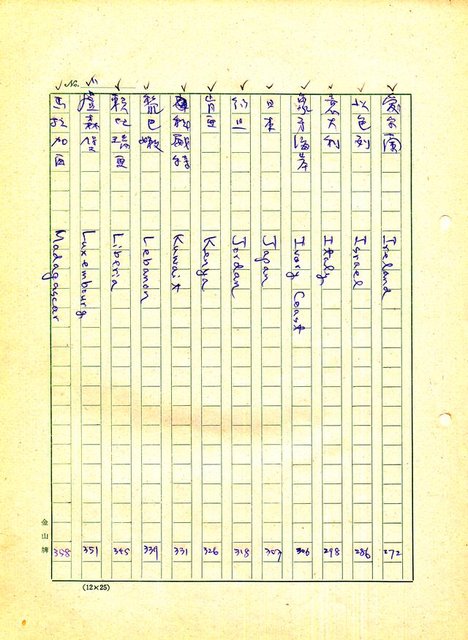 No.
愛尔蘭 Ireland 272
以色列 Israel 286
意大利 Italy 298
象牙海岸 Ivory Coast 306
日本 Japan 307
約旦 Jordan 318
肯亞 Kenya 326
科威特 Kuwait 331
黎巴嫩 Lebanon 339
賴比瑞亞 Liberia 345
盧森堡 Luxembourg 351
馬拉加西 Madagascar 358
金山牌
(12×25)